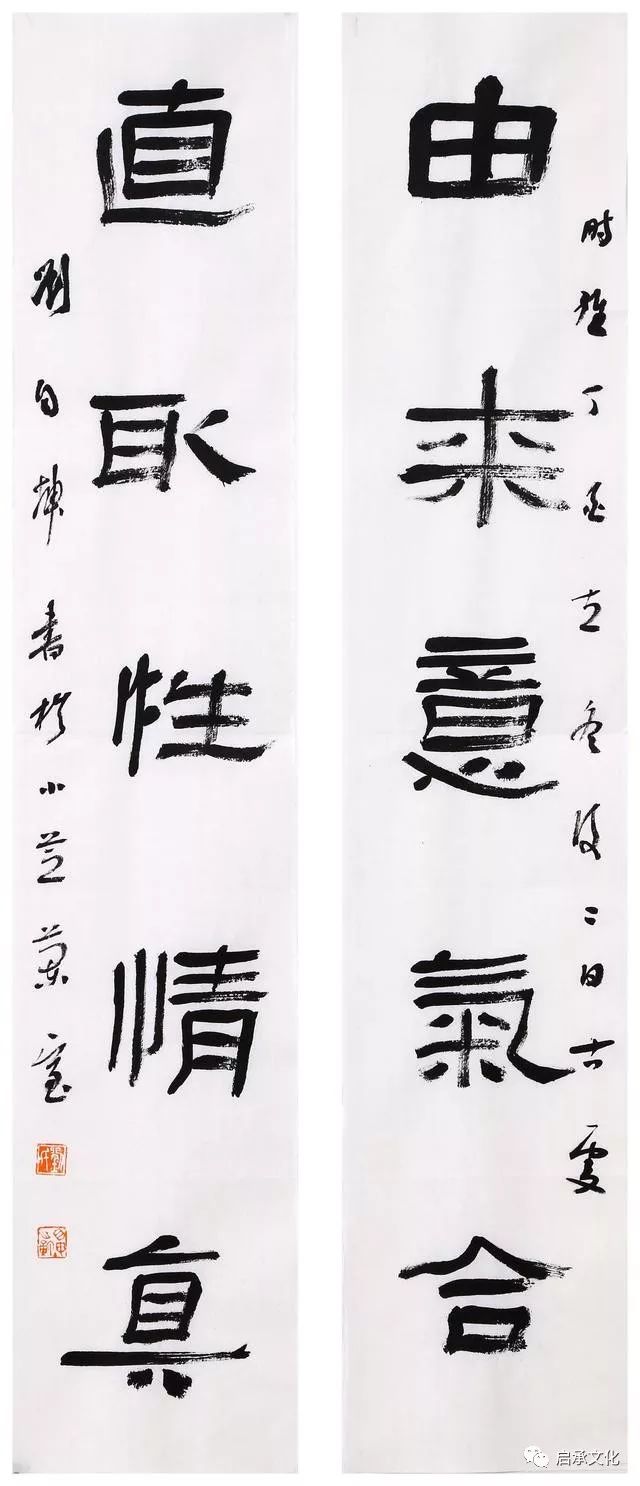 時維丁酉立冬後二日古
由来意氣合
直取性情真
劉自書於小芝蘭室
启承文化